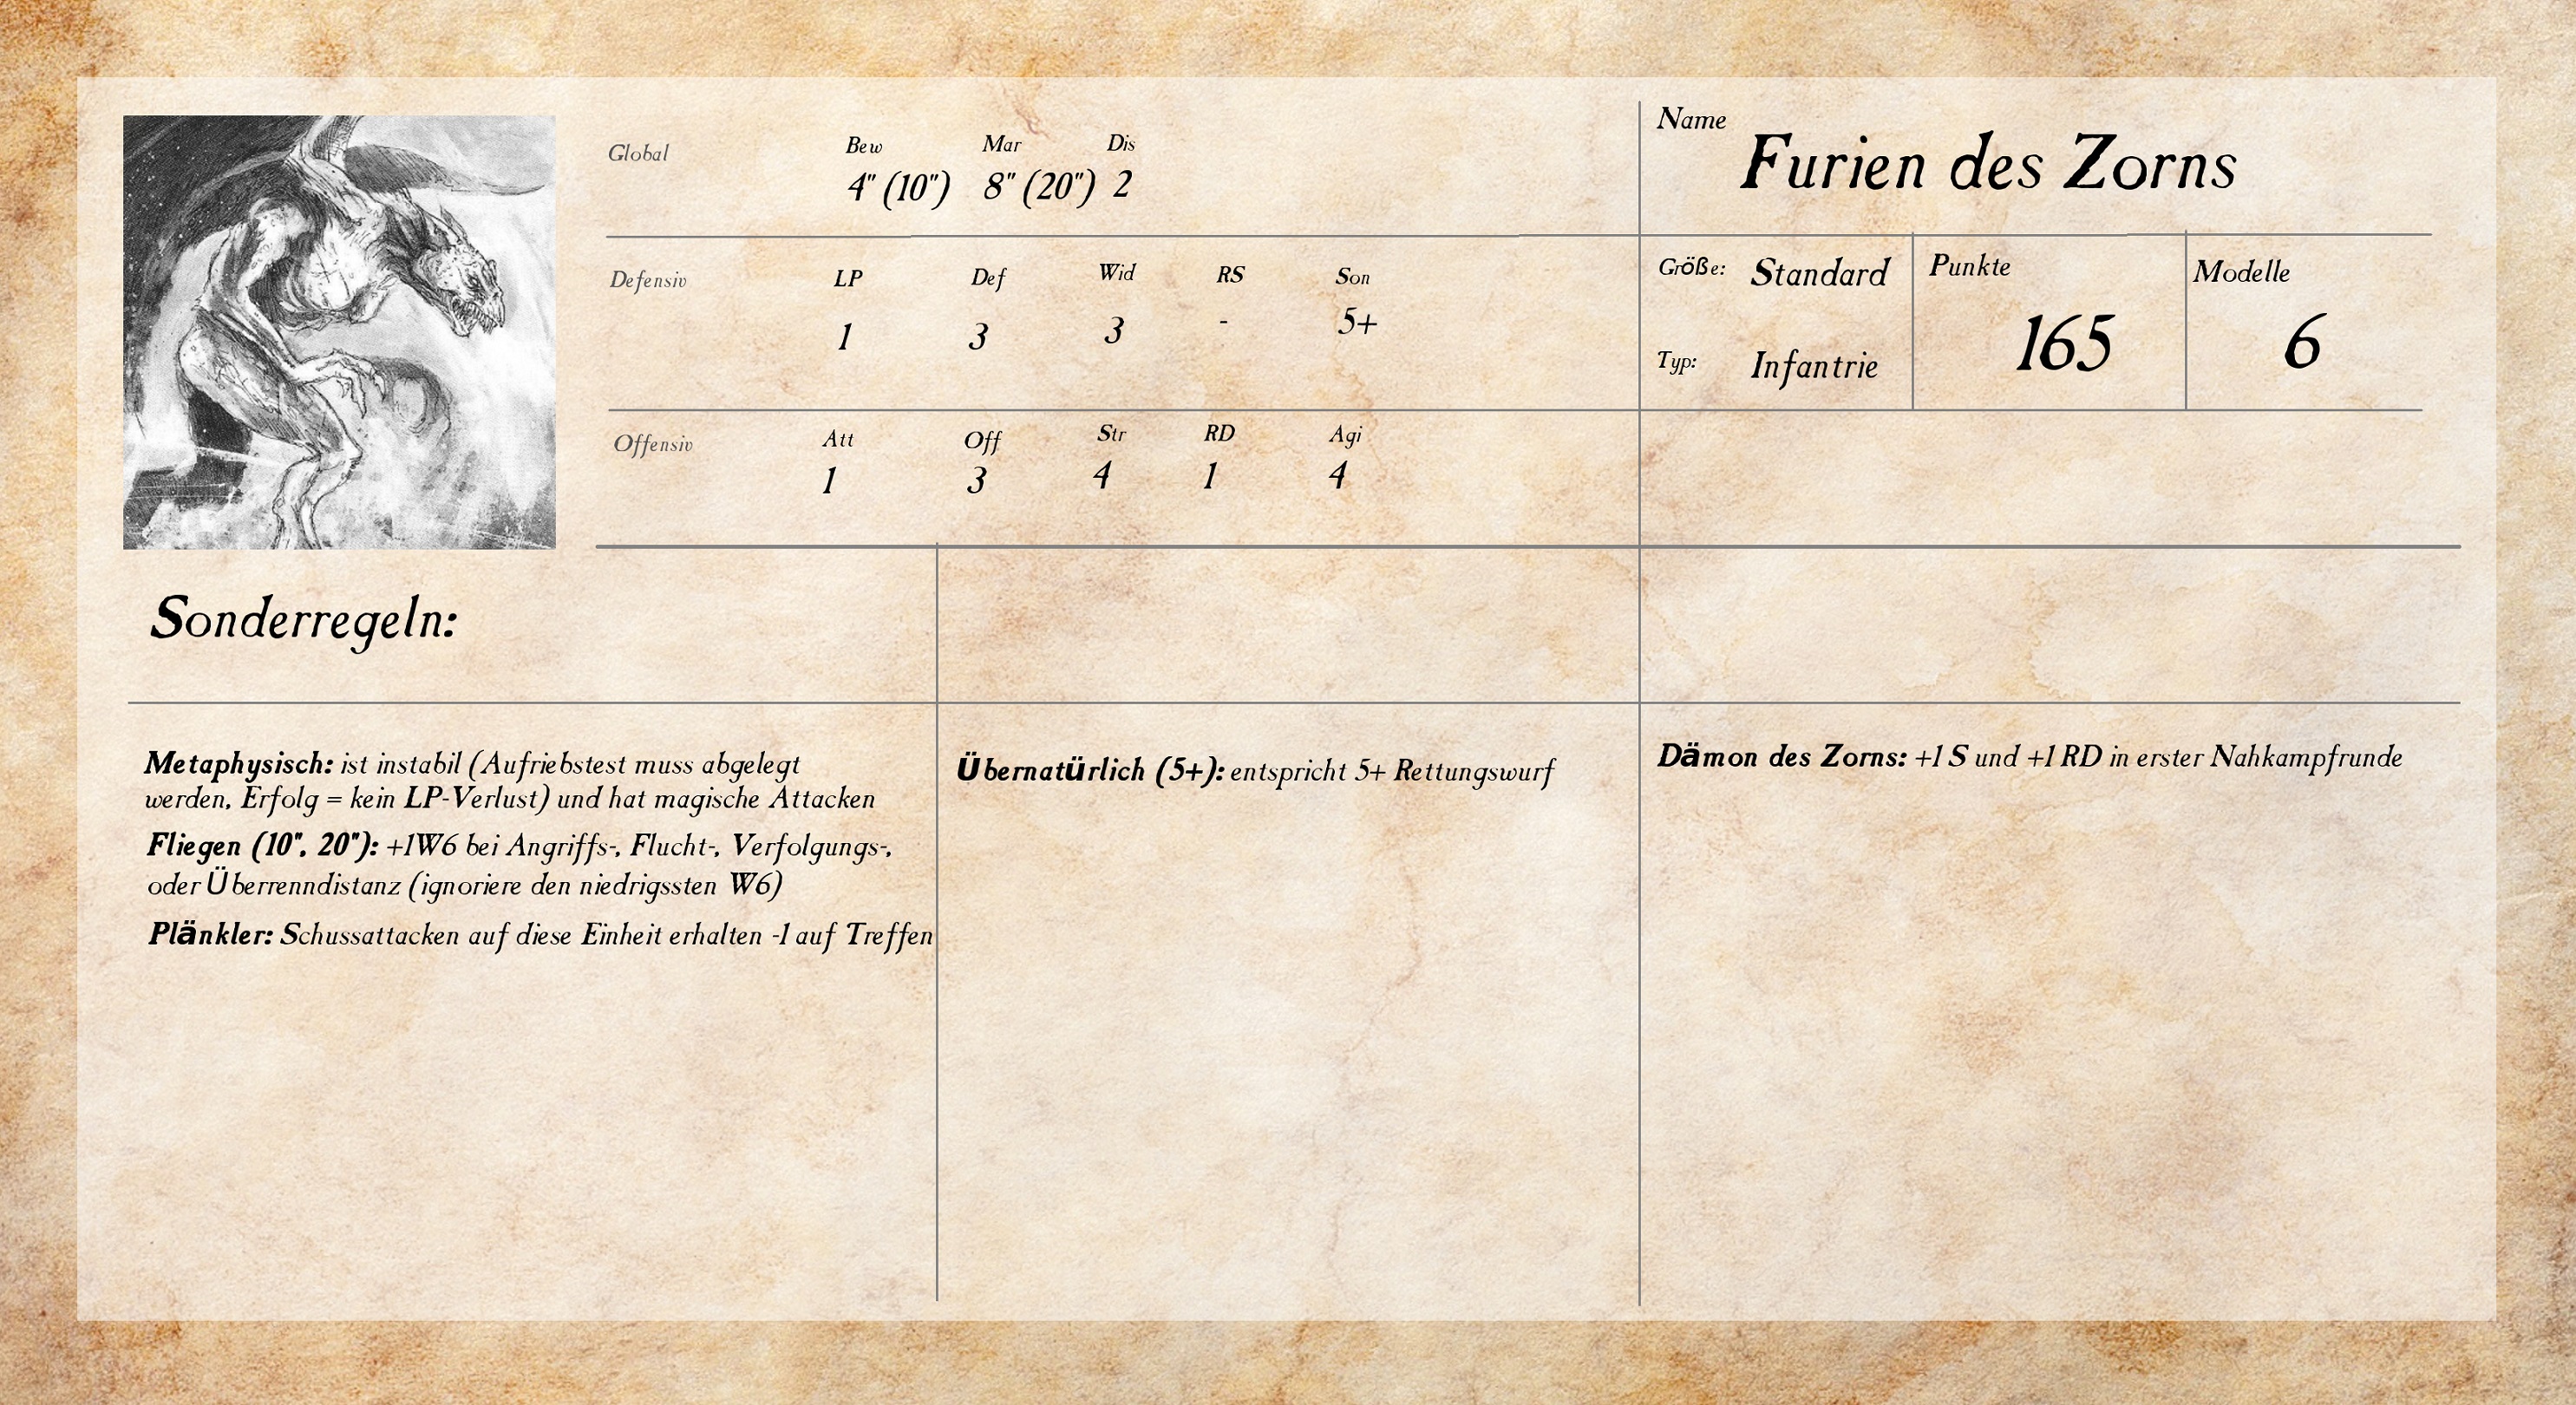 Global
Bew Mar Dis
4" (10") 8" (20") 2
Name
Furien des Zorns
Defensiv
LP Def Wid RS Son
1 3 3 - 5+
Größe: Standard
Typ: Infantrie
Punkte
165
Modelle
6
Offensiv
Att Off Str RD Agi
1 3 4 1 4
Sonderregeln:
Metaphysisch: ist instabil (Aufriebstest muss abgelegt
werden, Erfolg = kein LP-Verlust) und hat magische Attacken
Fliegen (10", 20"): +1W6 bei Angriffs-, Flucht-, Verfolgungs-,
oder Überrenndistanz (ignoriere den niedrigssten W6)
Plänkler: Schussattacken auf diese Einheit erhalten -1 auf Treffen
Übernatürlich (5+): entspricht 5+ Rettungswurf
Dämon des Zorns: +1 S und +1 RD in erster Nahkampfrunde